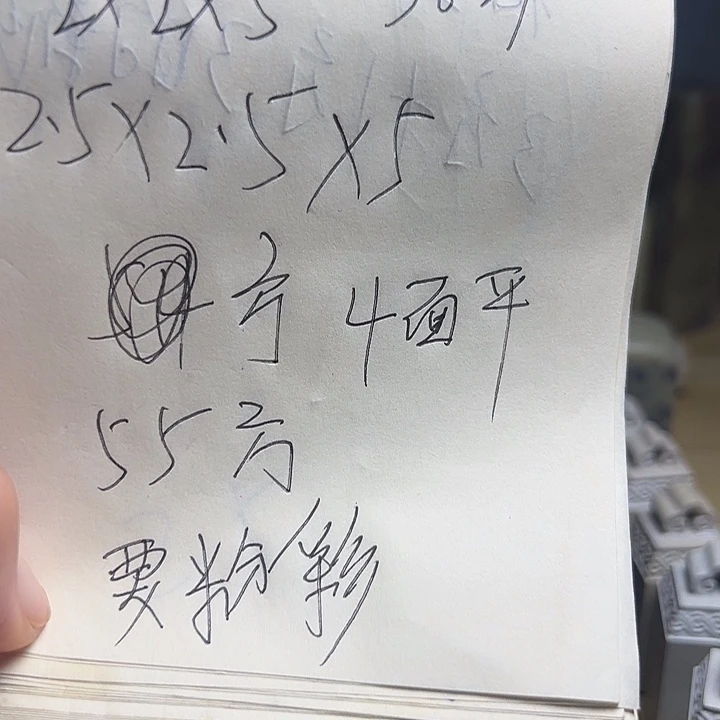 2×2×5
2.5×2.5×5
方 4面平
55方
要粉彩